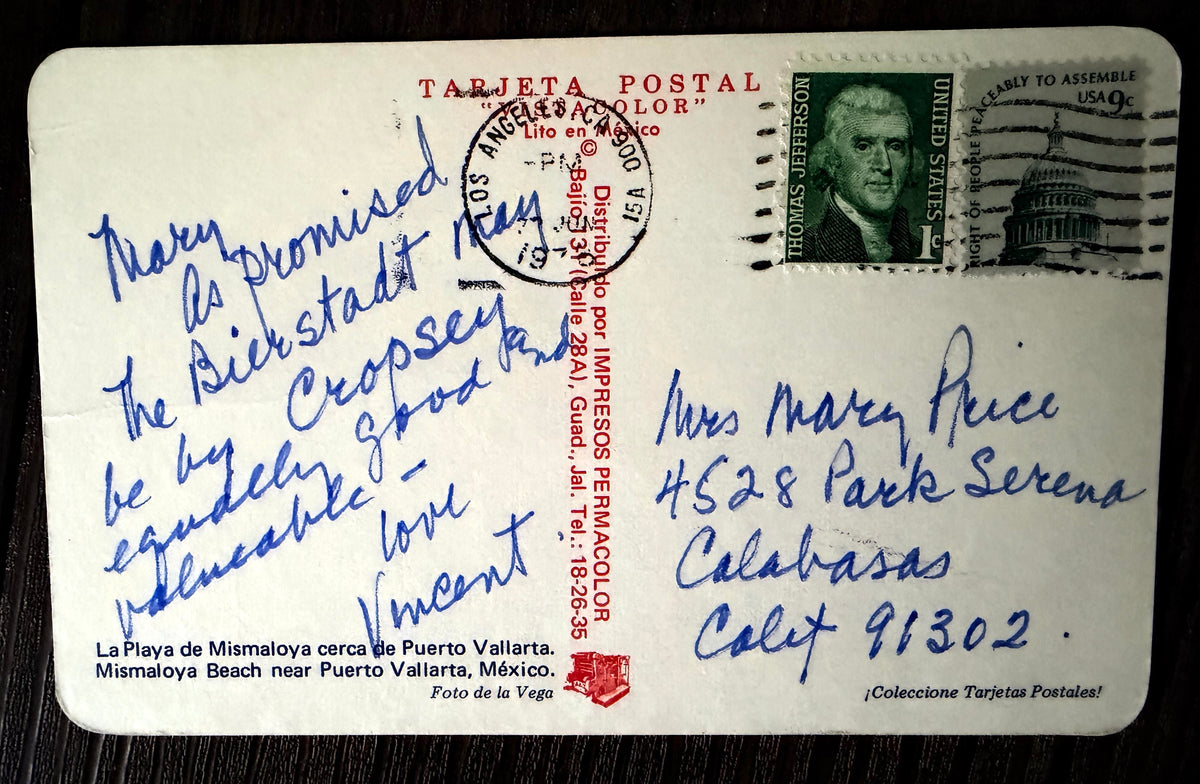 TARJETA POSTAL
“YUSACOLOR”
Lito en México
©
LOS ANGELES, CA 900
PM
JUN
15A
THOMAS JEFFERSON
UNITED STATES
1c
RIGHT OF PEOPLE PEACEABLY TO ASSEMBLE
USA 9c
Mary
As promised
The Bierstadt may
be by Cropsey
equally good and
valueable –
love
Vincent
Distribuido por IMPRESOS PERMACOLOR
Guad., Jal. Tel.: 18-26-35
Mrs Mary Price
4528 Park Serena
Calabasas
Calif 91302.
La Playa de Mismaloya cerca de Puerto Vallarta.
Mismaloya Beach near Puerto Vallarta, México.
Foto de la Vega
¡Coleccione Tarjetas Postales!